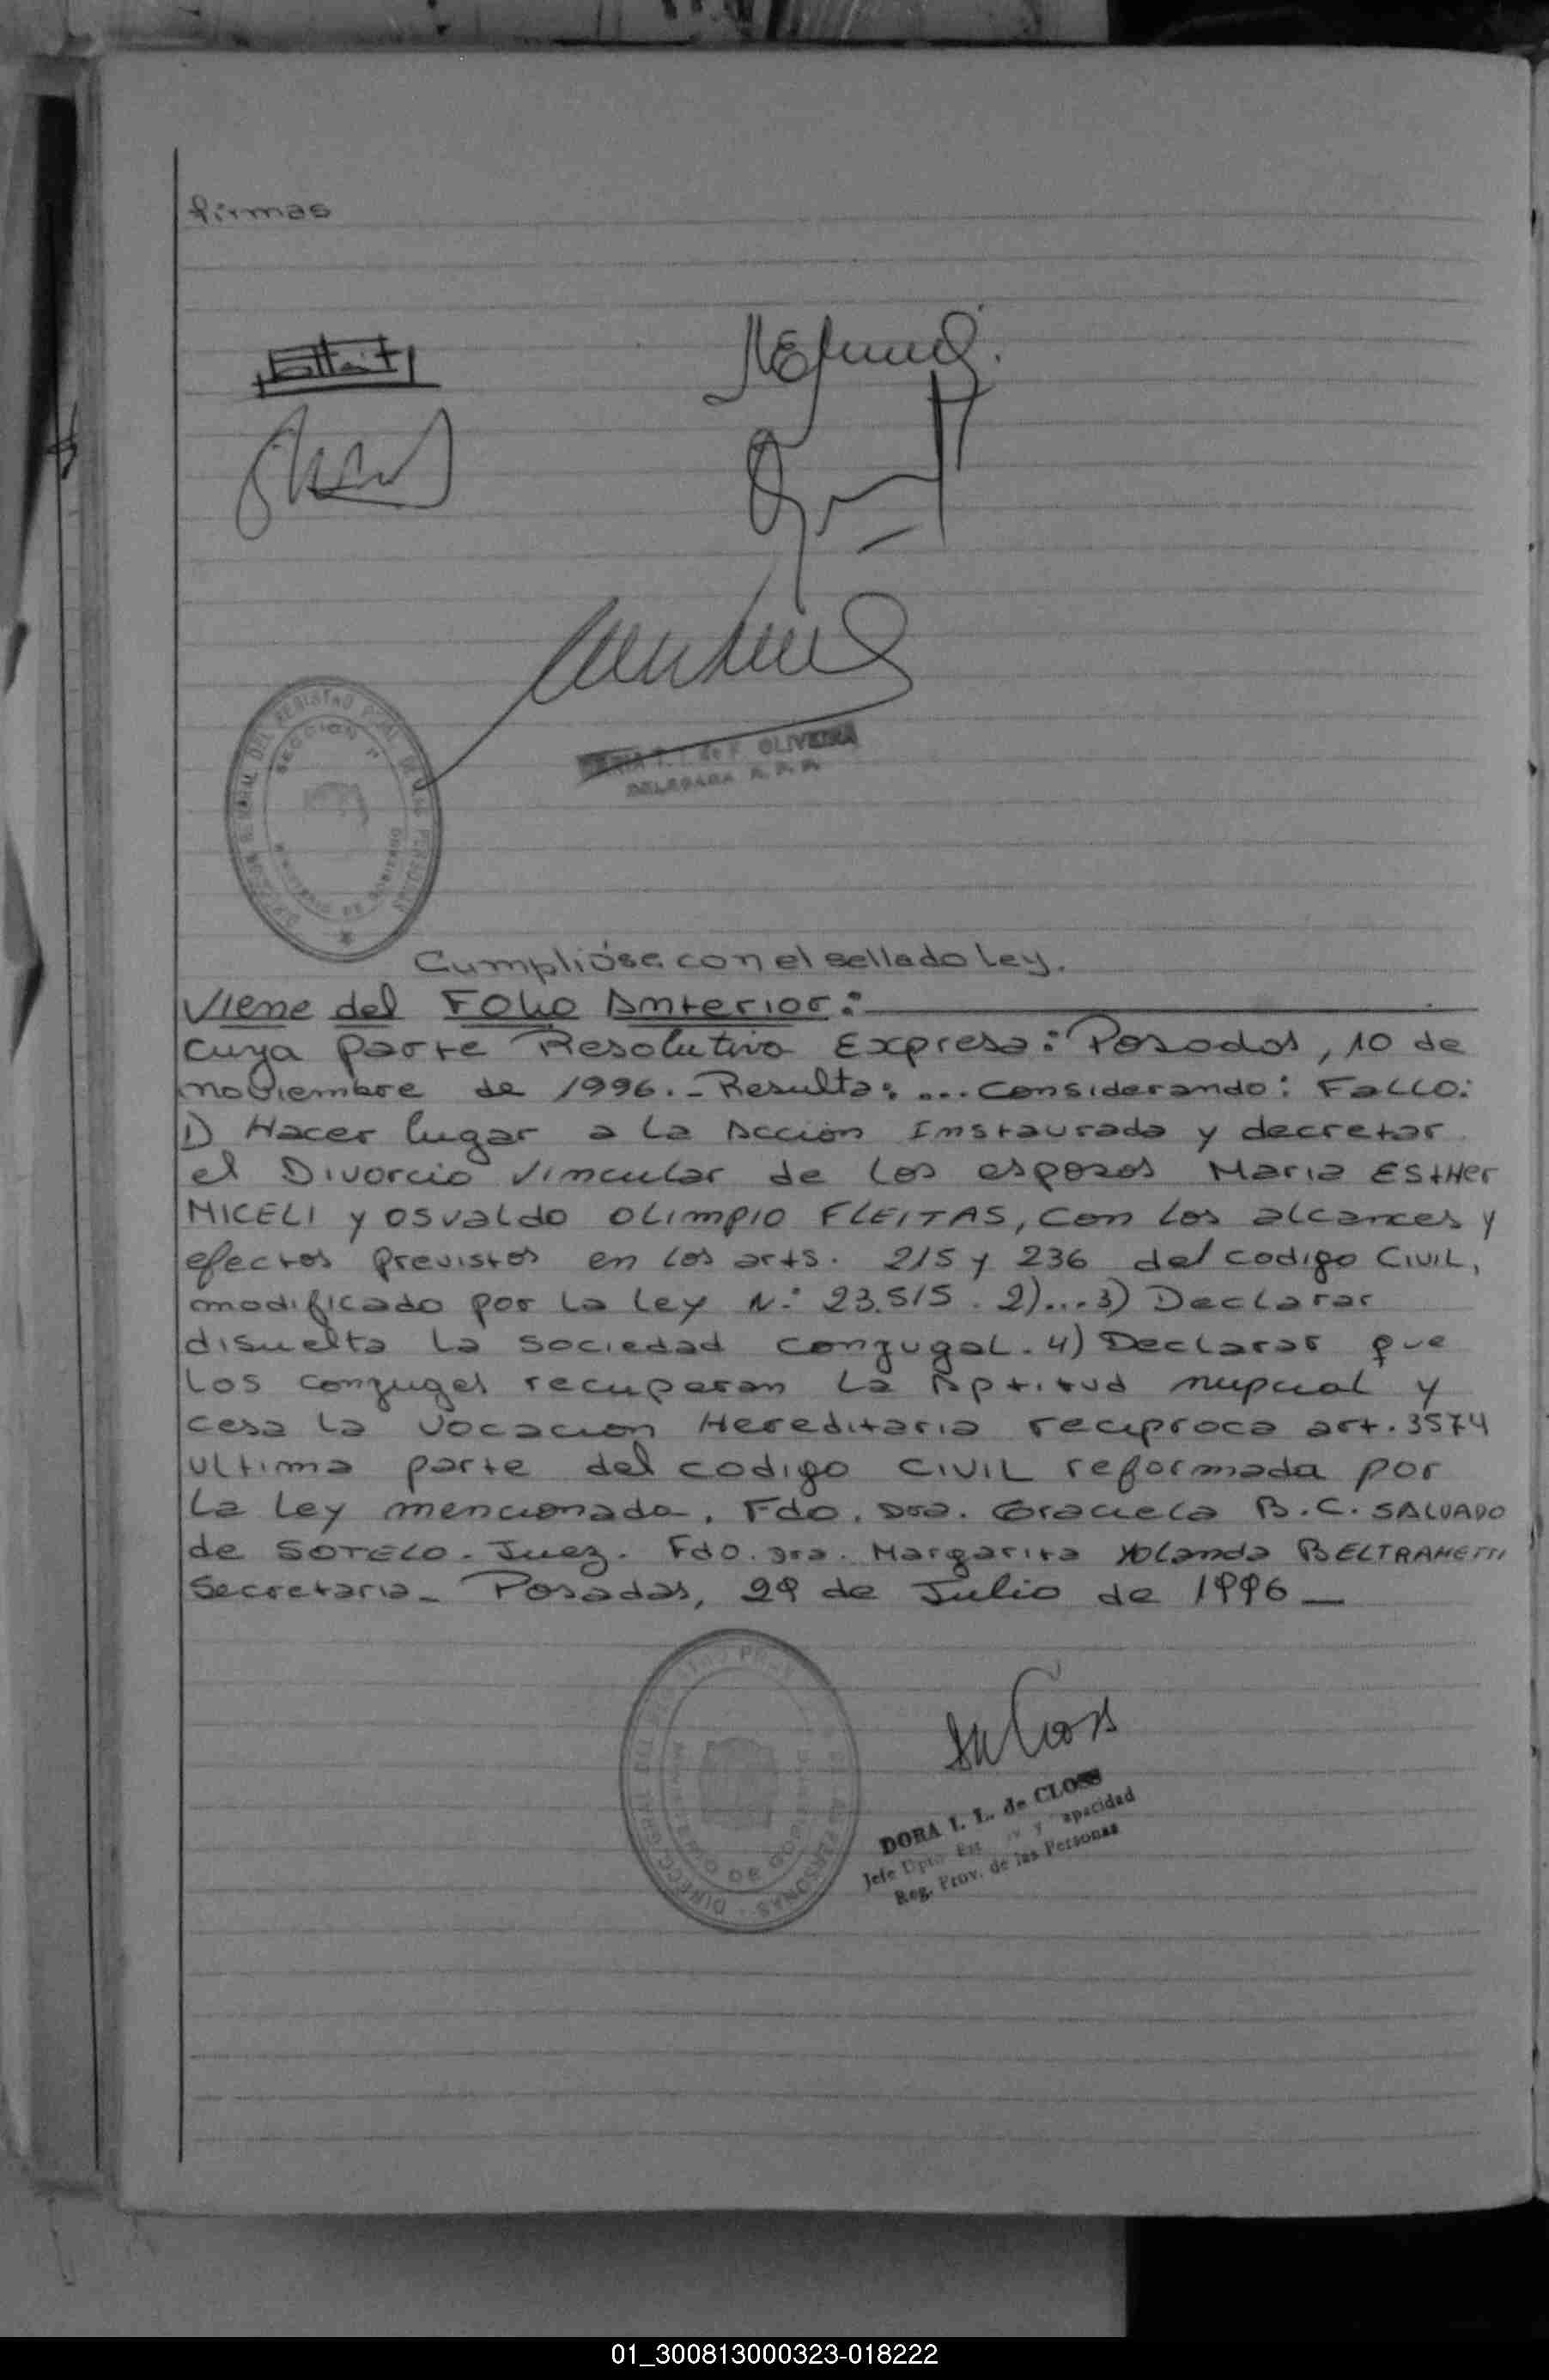 firmas
DIRECCION GENERAL DEL REGISTRO PCIAL DE LAS PERSONAS
SECCION 1ª
MINISTERIO DE GOBIERNO
MARIA T. T. de F. OLIVEIRA
DELEGADA R. P. P.
Cumplióse con el sellado Ley.
Viene del Folio Anterior:
cuya parte Resolutiva Expresa: Posadas, 10 de
noviembre de 1996.- Resulta: ... Considerando: FaLLO:
1) Hacer lugar a la Acción Instaurada y decretar
el Divorcio Vincular de los esposos Maria EstHer
MICELI y osvaldo OLimpio FLEITAS, con los alcances y
efectos previstos en los arts. 215 y 236 del codigo CiviL,
modificado por la Ley N.º 23.515. 2)...3) Declarar
disuelta la sociedad conyugal. 4) Declarar que
Los conyuges recuperan La Aptitud nupcial y
cesa la vocacion Hereditaria reciproca art. 3574
ultima parte del codigo CIVIL reformada por
La Ley mencionada. Fdo. Dra. Graciela B. C. SALVADO
de SOTELO. Juez. Fdo. Dra. Margarita Yolanda BELTRAMETTI
Secretaria_ Posadas, 29 de Julio de 1996_
DIRECC. GRAL DEL REGISTRO PROV. DE LAS PERSONAS
DORA I. L. de CLOSS
Jefe Dpto. Est. Civ. y Capacidad
Reg. Prov. de las Personas
01_300813000323-018222